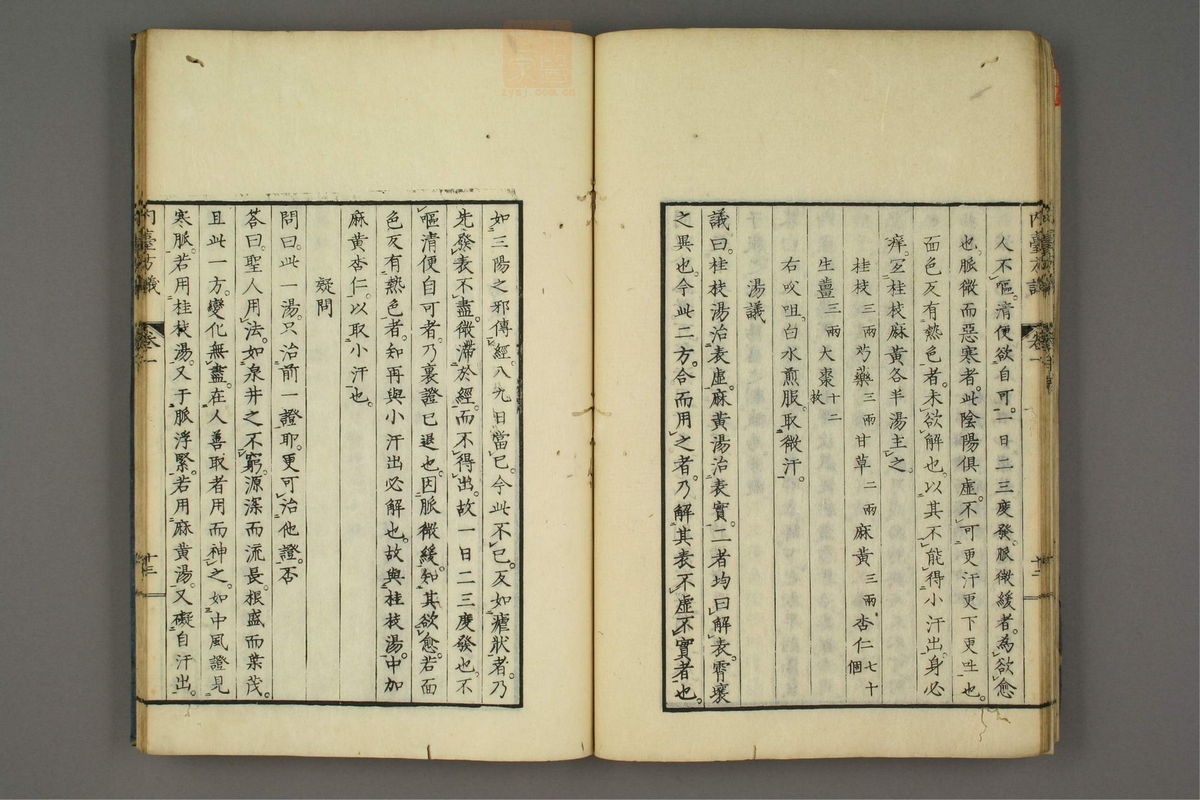 人不嘔。清便欲自可。一日二三度發。脈微緩者。為欲愈
也。脈微而惡寒者。此陰陽俱虛。不可更汗更下更吐也。
面色反有熱色者。未欲解也。以其不能得小汗出。身必
痒。宜桂枝麻黃各半湯主之。
桂枝三兩 芍藥三兩 甘草二兩 麻黃三兩 杏仁七十個
生薑三兩 大棗十二枚
右㕮咀。白水煎服。取微汗。
湯議
議曰。桂枝湯治表虛。麻黃湯治表實。二者均曰解表。霄壤
之異也。今此二方。合而用之者。乃解其表不虛不實者也。
內臺方議 卷一 十二
如三陽之邪傳經。八九日當已。今此不已。反如瘧狀者。乃
先發表不盡。微滯於經。而不得出。故一日二三度發也。不
嘔清便自可者。乃裏證已退也。因脈微緩。知其欲愈。若面
色反有熱色者。知再與小汗出必解也。故與桂枝湯中加
麻黃杏仁。以取小汗也。
疑問
問曰。此一湯。只治前一證耶。更可治他證。否
荅曰。聖人用法。如泉井之不窮。源深而流長。根盛而葉茂。
且此一方。變化無盡。在人善取者用而神之。如中風證見
寒脈。若用桂枝湯。又于脈浮緊。若用麻黃湯。又礙自汗出。
內臺方議 卷一 十三
zysj.com.cn